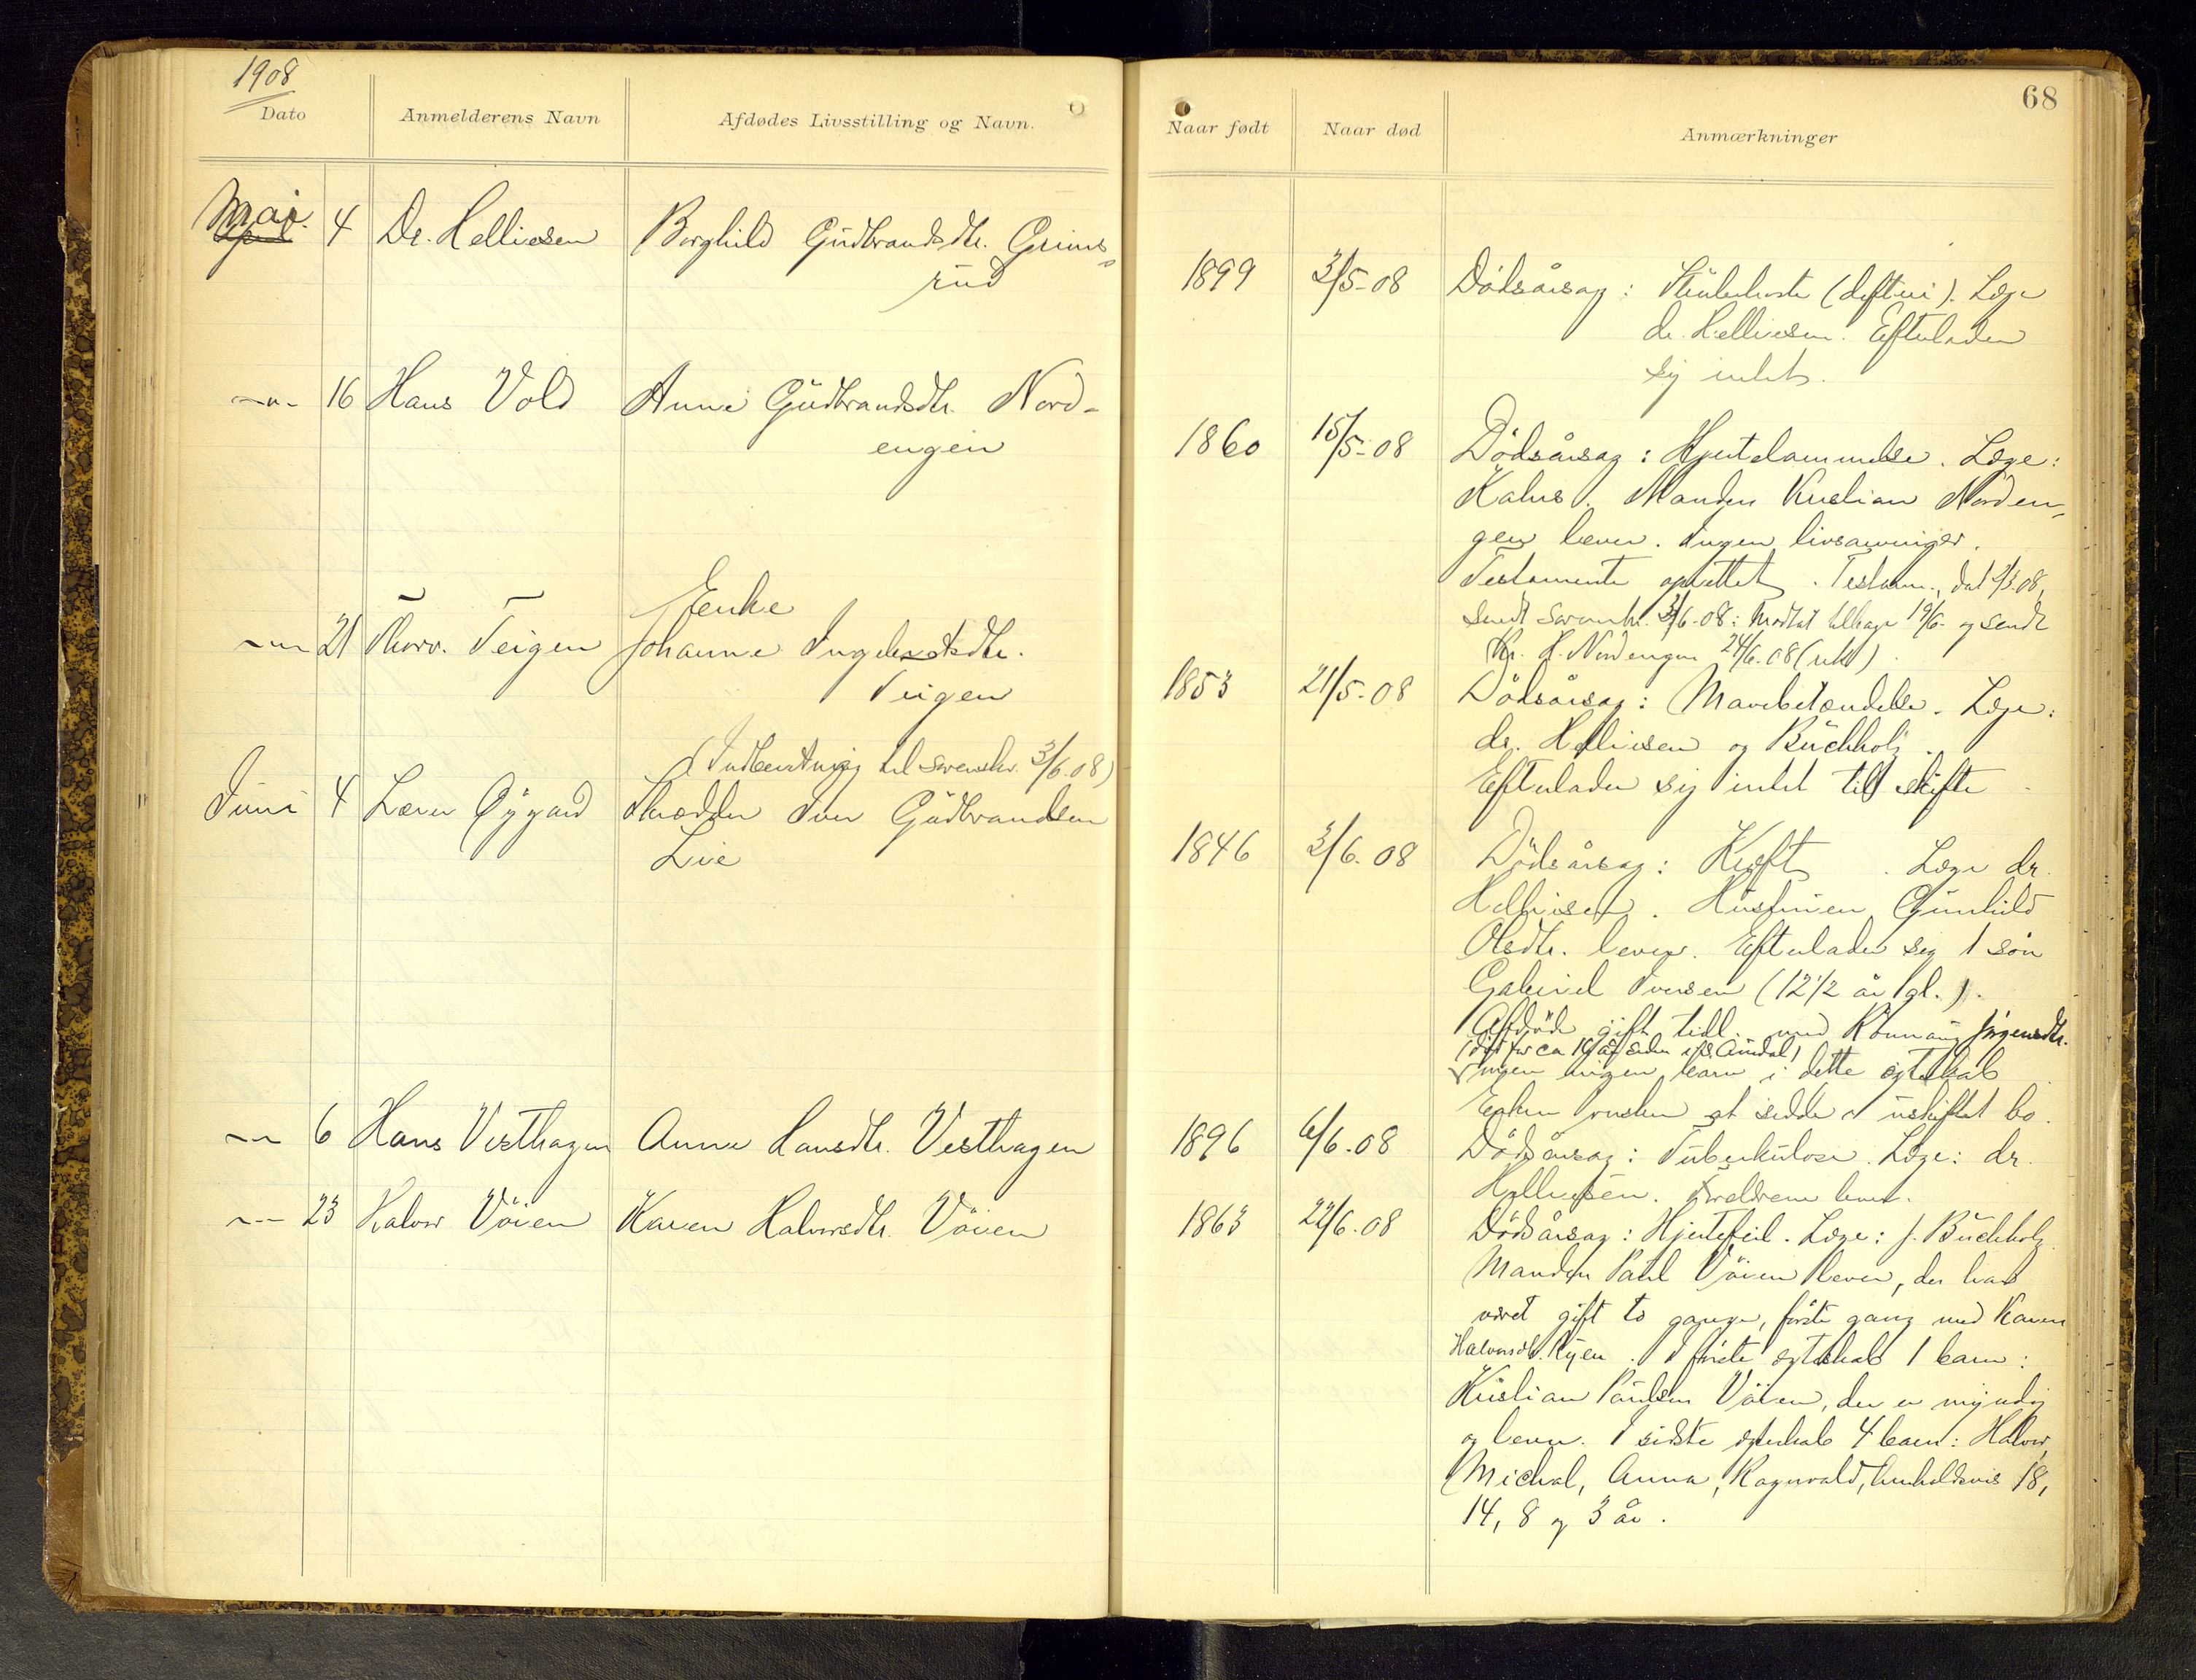 1908
Dato
Anmelderens Navn
Afdødes Livsstilling og Navn.
Mai
April
4
Dr. Helliesen
Borghild Gudbrandsdtr. Grims-
rud
-„-
16
Hans Vold
Anne Gudbrandsdtr. Nord-
engen
Enke
21
Thorv. Teigen
Johanne Ingebretsdtr.
Teigen
(Indberetning til sorenskr. 3/6.08)
Juni
4
Lærer Øygard
Skrædder Iver Gudbrandsen
Lie
6
Hans Vesthagen
Anne Hansdtr. Vesthagen
23
Halvor Vöien
Karen Halvorsdtr. Vöien
68
Naar født
Naar død
Anmærkninger
1899
3/5-08
Dödsårsag: Strubehoste (difteri). Læge
dr. Helliesen. Efterlader
sig intet.
1860
15/5-08
Dödsårsag: Hjertelammelse. Læge:
Kahrs. Manden Kristian Norden-
gen lever. Ingen livsarvinger.
Testamente oprettet. Testam., dat 1/3.08,
sendt sorenskr. 3/6-08: Modtat tilbage 19/6- og sendt
Kr. H. Nordengen 24/6.08 (rek)
1853
21/5-08
Dödsårsag: Mavebetændelse. Læge:
dr. Helliesen og Buchholz.
Efterlader sig intet til skifte
1846
3/6.08
Dödsårsag: Kræft. Læge dr.
Helliesen. Hustruen Gunhild
Olsdtr. lever. Efterlader sig 1 sön
Gabriel Iversen (12 1/2 år gl.).
Afdöde gift tidl. med Rönnaug Jörgensdtr.
(död for ca 19 år siden i S. Aurdal)
ingen barn i dette ægteskab
Enken önsker at sidde i uskiftet bo.
1896
6/6.08
Dödsårsag: Tuberkulose. Læge: dr.
Helliesen. Forældrene lever.
1863
22/6.08
Dödsårsag: Hjertefeil. Læge: J. Buchholz
Manden Paul Vöien lever, der har
været gift to gange, förste gang med Karen
Halvorsdtr. Ryen. I förste ægteskab 1 barn:
Kristian Paulsen Vöien, der er myndig
og lever. I sidste ægteskab 4 barn: Halvor,
Michal, Anna, Ragnvald, henholdsvis 18,
14, 8 og 3 år.